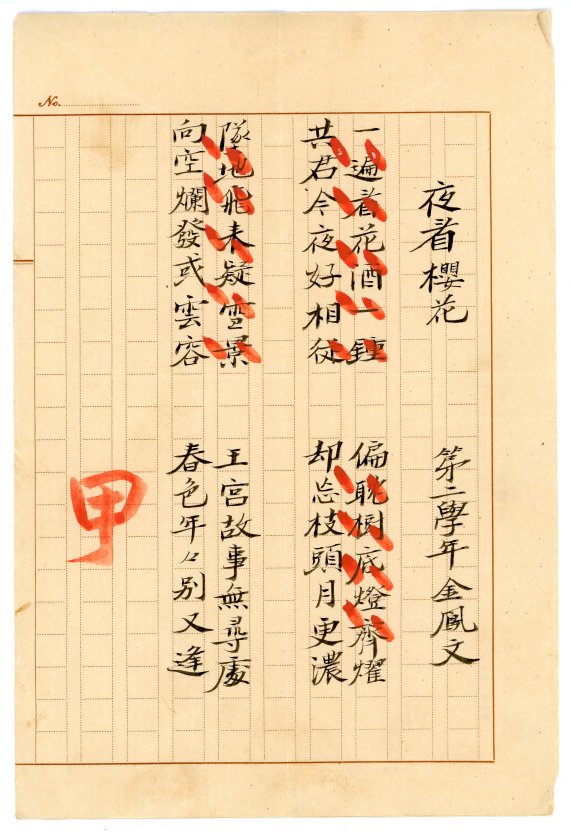 夜看櫻花
第二學年 金鳳文
一遍看花酒一鍾
共君今夜好相從
偏耽樹底燈齊燿
却忘枝頭月更濃
墜地飛来疑雪景
向空爛發或雲容
王宮故事無尋處
春色年々別又逢
甲
No.